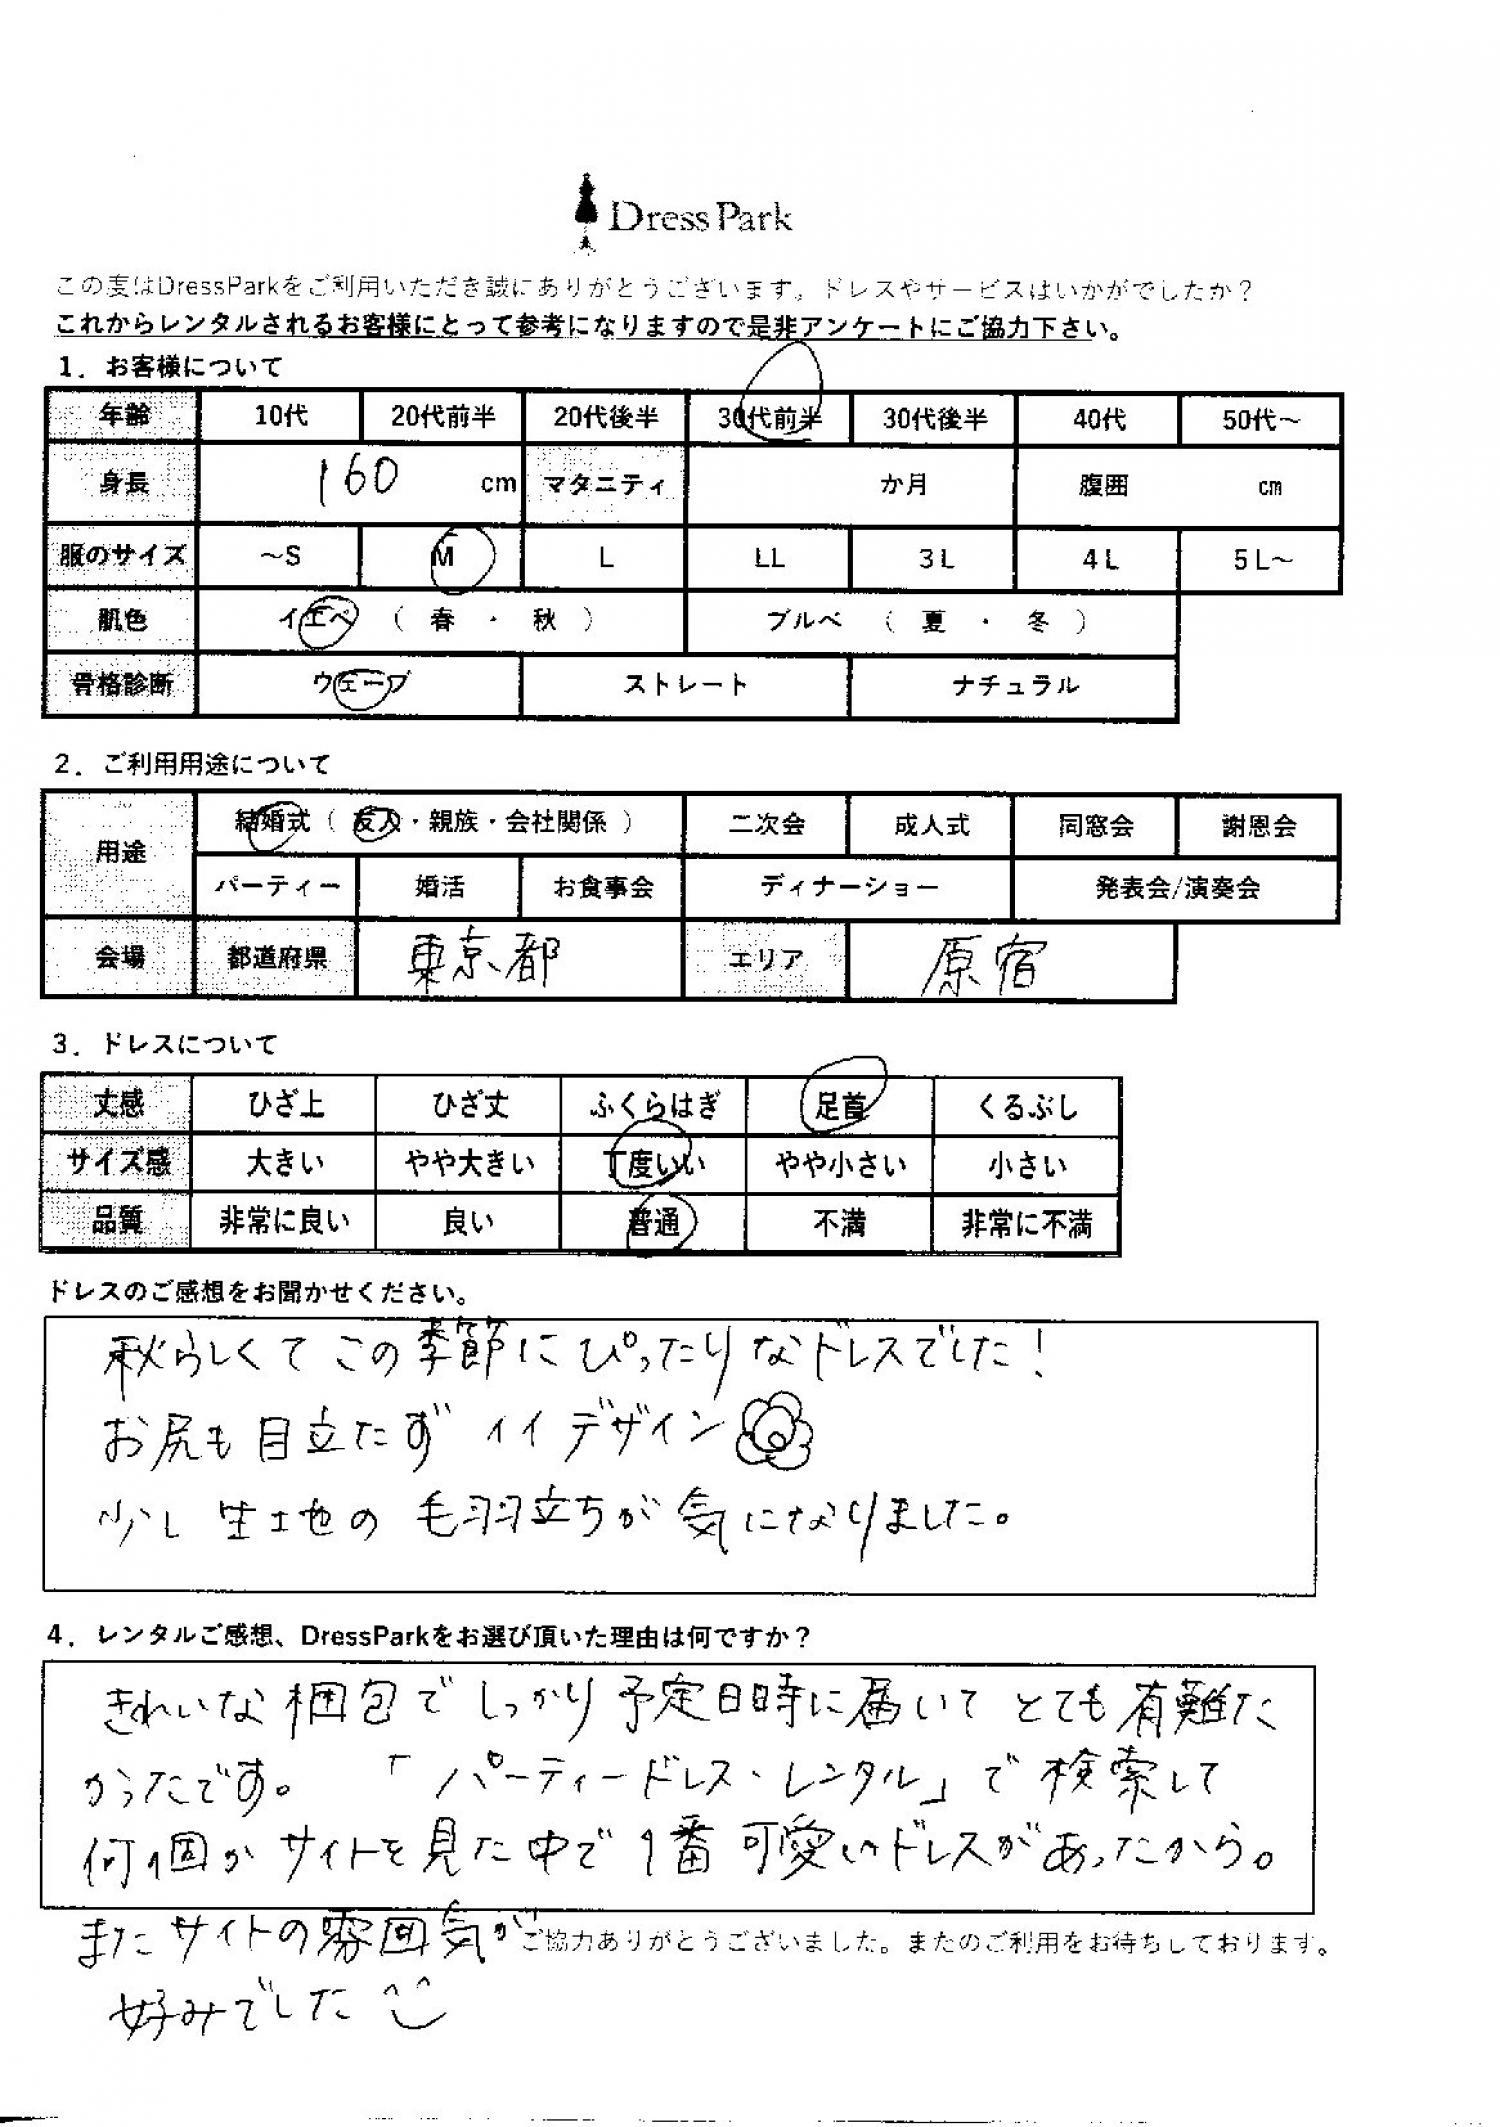 Dress Park
この度はDressParkをご利用いただき誠にありがとうございます。ドレスやサービスはいかがでしたか？
これからレンタルされるお客様にとって参考になりますので是非アンケートにご協力下さい。
1．お客様について
年齢 10代 20代前半 20代後半 30代前半 30代後半 40代 50代～
身長 160 cm マタニティ か月 腹囲 cm
服のサイズ ～S M L LL 3L 4L 5L～
肌色 イエベ （ 春 ・ 秋 ） ブルベ （ 夏 ・ 冬 ）
骨格診断 ウェーブ ストレート ナチュラル
2．ご利用用途について
用途 結婚式（ 友人・親族・会社関係 ） 二次会 成人式 同窓会 謝恩会
パーティー 婚活 お食事会 ディナーショー 発表会/演奏会
会場 都道府県 東京都 エリア 原宿
3．ドレスについて
丈感 ひざ上 ひざ丈 ふくらはぎ 足首 くるぶし
サイズ感 大きい やや大きい 丁度いい やや小さい 小さい
品質 非常に良い 良い 普通 不満 非常に不満
ドレスのご感想をお聞かせください。
秋らしくてこの季節にぴったりなドレスでした！
お尻も目立たず イイデザイン
少し生地の毛羽立ちが気になりました。
4．レンタルご感想、DressParkをお選び頂いた理由は何ですか？
きれいな梱包でしっかり予定日時に届いてとても有難た
かったです。「パーティードレス・レンタル」で検索して
何個かサイトを見た中で1番可愛いドレスがあったから。
またサイトの雰囲気が
ご協力ありがとうございました。またのご利用をお待ちしております。
好みでした